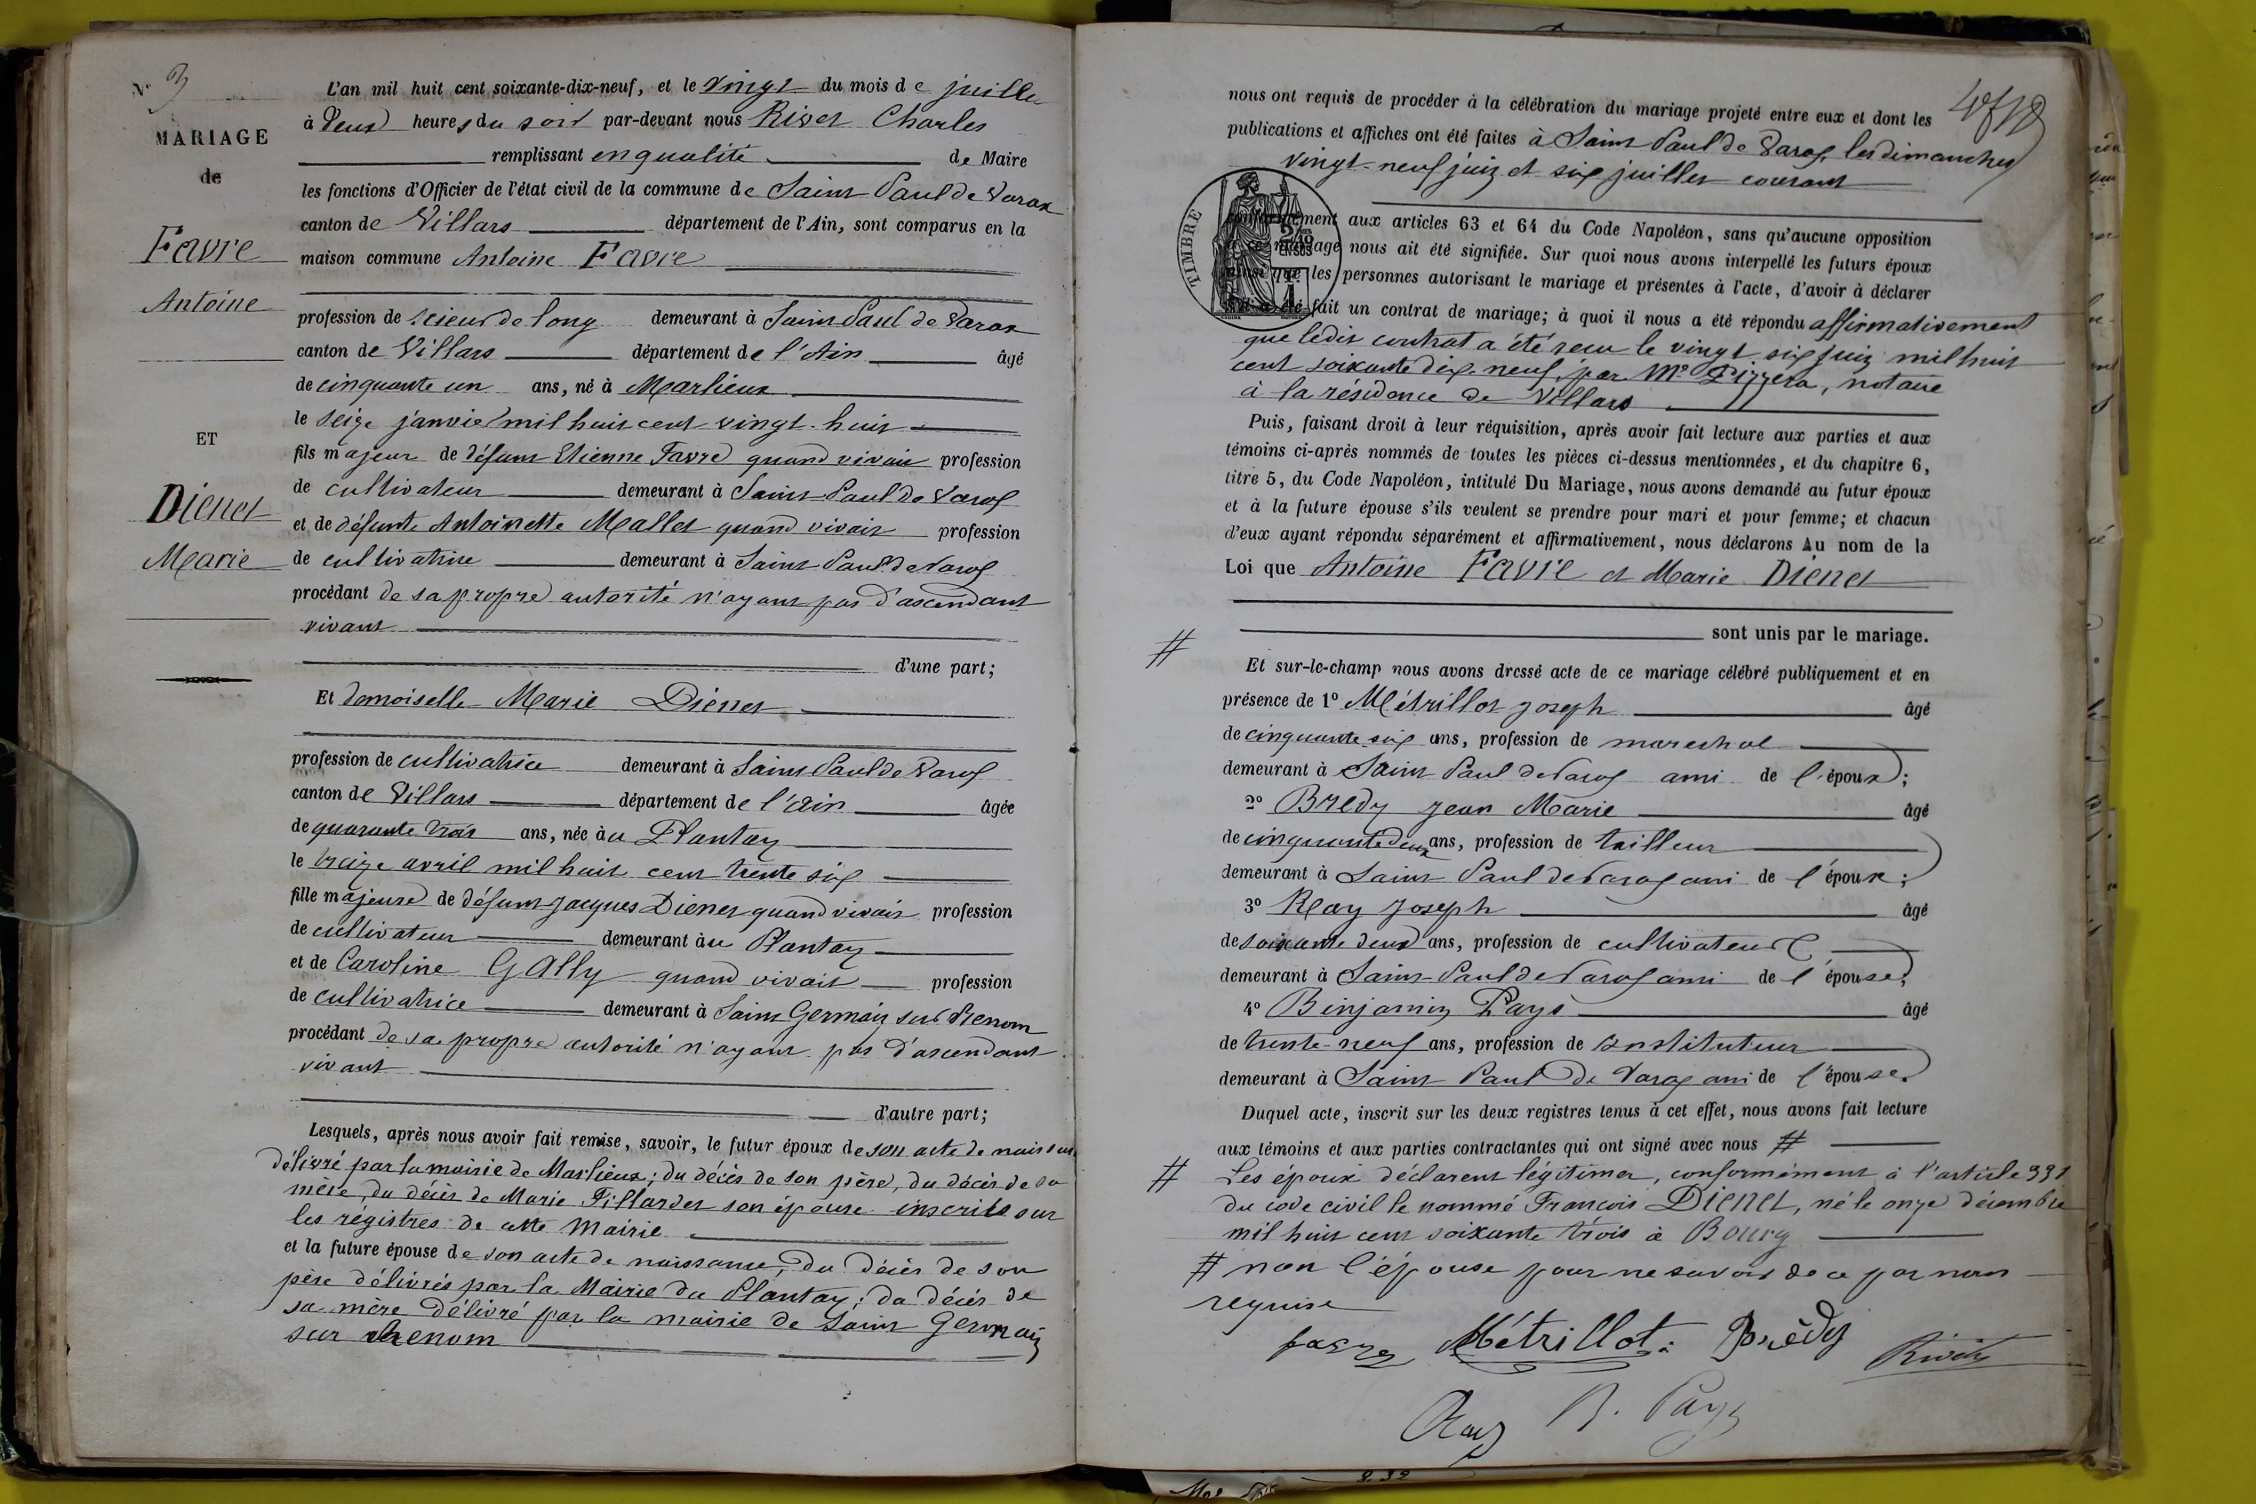 N° 3
MARIAGE
de
Favre
Antoine
ET
Dienet
Marie
L'an mil huit cent soixante-dix-neuf, et le vingt du mois de juillet
à deux heures du soir par-devant nous Rivet Charles
remplissant en qualité de Maire
les fonctions d'Officier de l'état civil de la commune de Saint Paul de Varax
canton de Villars département de l'Ain, sont comparus en la
maison commune Antoine Favre
profession de scieur de long demeurant à Saint Paul de Varax
canton de Villars département de l'Ain âgé
de cinquante un ans, né à Marlieux
le seize janvier mil huit cent vingt-huit
fils majeur de défunt Etienne Favre quand vivait profession
de cultivateur demeurant à Saint Paul de Varax
et de défunte Antoinette Mallet quand vivait profession
de cultivatrice demeurant à Saint Paul de Varax
procédant de sa propre autorité n'ayant pas d'ascendant
vivant
d'une part;
Et demoiselle Marie Dienet
profession de cultivatrice demeurant à Saint Paul de Varax
canton de Villars département de l'Ain âgée
de quarante trois ans, née àu Plantay
le treize avril mil huit cent trente six
fille majeure de défunt Jacques Dienet quand vivait profession
de cultivateur demeurant àu Plantay
et de Caroline Gally quand vivait profession
de cultivatrice demeurant à Saint Germain sur Renom
procédant de sa propre autorité n'ayant pas d'ascendant
vivant
d'autre part;
Lesquels, après nous avoir fait remise, savoir, le futur époux de son acte de naissance
délivré par la mairie de Marlieux; du décès de son père, du décès de sa
mère, du décès de Marie Pillardet son épouse inscrits sur
les régistres de cette Mairie
et la future épouse de son acte de naissance, du décès de son
père délivrés par la Mairie du Plantay; du décès de
sa mère délivré par la mairie de Saint Germain
sur Renom
nous ont requis de procéder à la célébration du mariage projeté entre eux et dont les
publications et affiches ont été faites à Saint Paul de Varax, les dimanches
vingt-neuf juin et six juillet courant
TIMBRE
conformément aux articles 63 et 64 du Code Napoléon, sans qu'aucune opposition
à ce mariage nous ait été signifiée. Sur quoi nous avons interpellé les futurs époux
ainsi que les personnes autorisant le mariage et présentes à l'acte, d'avoir à déclarer
s'il a été fait un contrat de mariage; à quoi il nous a été répondu affirmativement
que ledit contrat a été reçu le vingt six juin mil huit
cent soixante dix-neuf, par Me Pizzera, notaire
à la résidence de Villars
Puis, faisant droit à leur réquisition, après avoir fait lecture aux parties et aux
témoins ci-après nommés de toutes les pièces ci-dessus mentionnées, et du chapitre 6,
titre 5, du Code Napoléon, intitulé Du Mariage, nous avons demandé au futur époux
et à la future épouse s'ils veulent se prendre pour mari et pour femme; et chacun
d'eux ayant répondu séparément et affirmativement, nous déclarons Au nom de la
Loi que Antoine Favre et Marie Dienet
sont unis par le mariage.
#
Et sur-le-champ nous avons dressé acte de ce mariage célébré publiquement et en
présence de 1° Métrillot Joseph âgé
de cinquante six ans, profession de marechal
demeurant à Saint Paul de Varax ami de l'époux;
2° Bredy Jean Marie âgé
de cinquante deux ans, profession de tailleur
demeurant à Saint Paul de Varax ami de l'époux;
3° Ray Joseph âgé
de soixante deux ans, profession de cultivateur
demeurant à Saint Paul de Varax ami de l'épouse;
4° Binjamin Pays âgé
de trente-neuf ans, profession de instituteur
demeurant à Saint Paul de Varax ami de l'épouse.
Duquel acte, inscrit sur les deux registres tenus à cet effet, nous avons fait lecture
aux témoins et aux parties contractantes qui ont signé avec nous #
# Les époux déclarent légitimer, conformément à l'article 331
du code civil le nommé François Dienet, né le onze décembre
mil huit cent soixante trois à Bourg
# non l'épouse pour ne savoir de ce par nous
requise
favre Métrillot Brèdy Rivet
Ray B. Pays